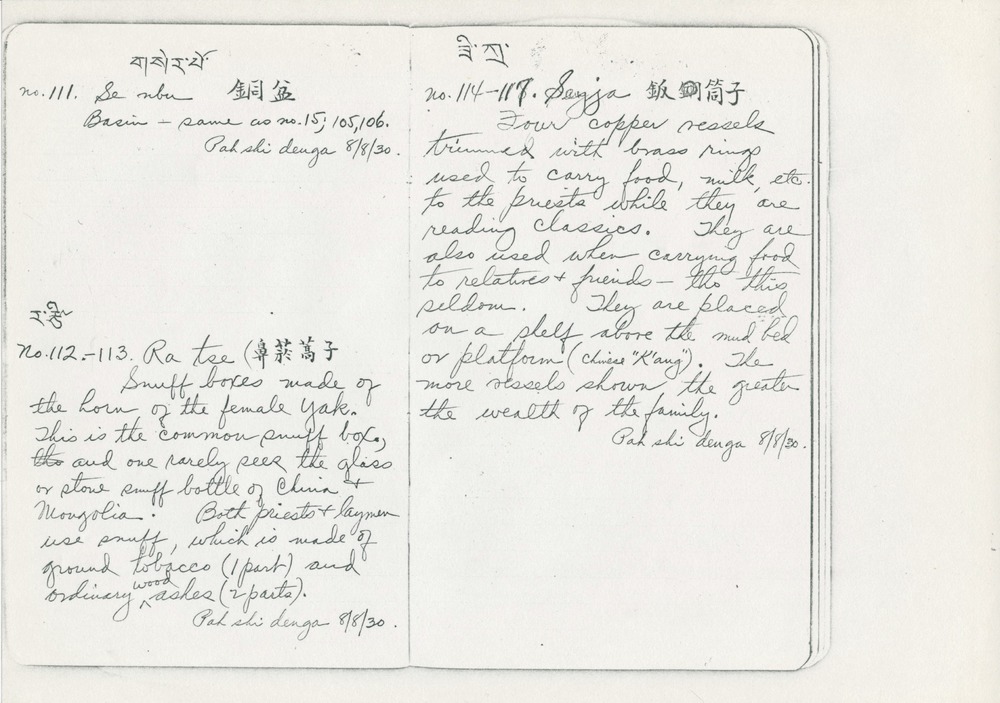 no. 111. Se nbu 銅盆
Basin - same as no. 15; 105, 106.
Pah shi denga 8/8/30.
ར་
No. 112.-113. Ra tse (鼻菸蒿子
Snuff boxes made of
the horn of the female Yak.
This is the common snuff box,
tho and one rarely sees the glass
or stone snuff bottle of China +
Mongolia. Both priests + laymen
use snuff, which is made of
ground tobacco (1 part) and
ordinary wood ashes (2 parts).
Pah shi denga 8/8/30.
no. 114-117. 筒子
Four copper vessels
trimmed with brass rings
used to carry food, milk, etc.
to the priests while they are
reading classics. They are
also used when carrying food
to relatives + friends - tho this
seldom. They are placed
on a shelf above the mud bed
or platform (Chinese "K'ang"). The
more vessels shown the greater
the wealth of the family.
Pah shi denga 8/8/30.